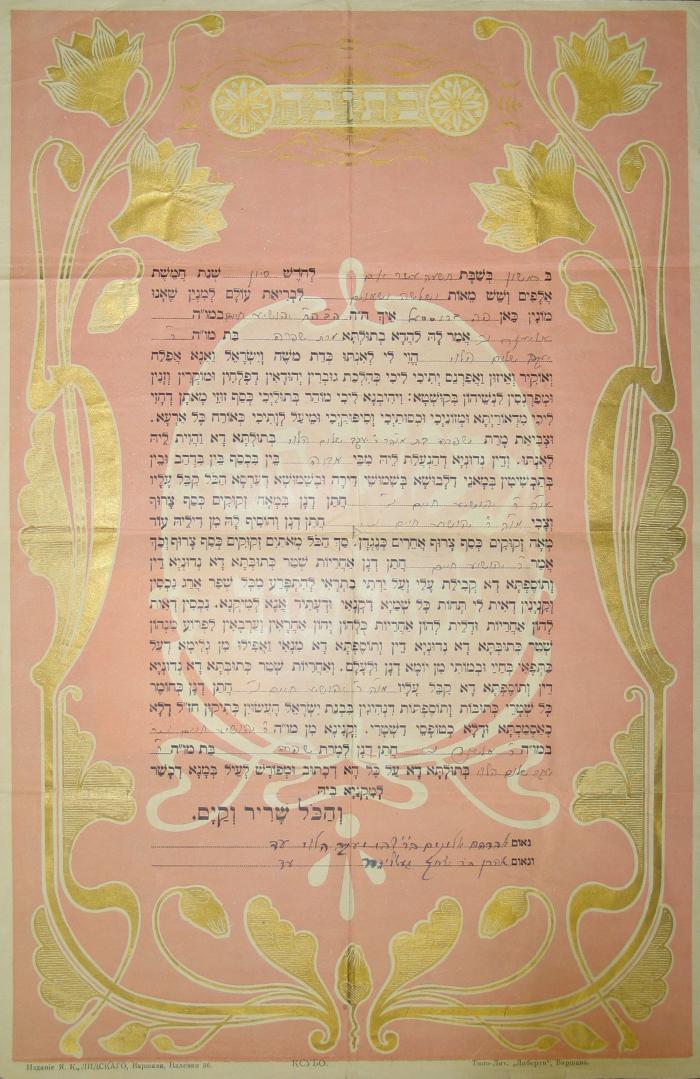 כתובה
ב בשבת חמשה עשר יום לחדש סיון שנת חמשת
אלפים ושש מאות ושלשה ושבעים לבריאת עולם למנין שאנו
מונין כאן איך ר' יהושיע חיים במו״ה
אמר לה להדא בתולתא מרת שפרה בת מו״ה ר׳
יעקב שלום הלוי הוי לי לאנתו כדת משה וישראל ואנא אפלח
ואוקיר ואיזון ואפרנס יתיכי ליכי כהלכת גוברין יהודאין דפלחין ומוקרין וזנין
ומפרנסין לנשיהון בקושטא: ויהיבנא ליכי מוהר בתוליכי כסף זוזי מאתן דחזי
ליכי מדאוריתא ומזוניכי וכסותיכי וסיפוקיכי ומיעל לותיכי כאורח כל ארעא.
וצביאת מרת שפרה בת יעקב שלום הלוי בתולתא דא והות ליה
לאנתו. ודין נדוניא דהנעלת ליה מבי אבוה בין בכסף בין בדהב בין
בתכשיטין במאני דלבושא בשמושי דירה ובשמושא דערסא הכל קבל עליו
מו״ה ר׳ יהושיע חיים חתן דנן במאה זקוקים כסף צרוף
וצבי מו״ה ר׳ יהושיע חיים חתן דנן והוסיף לה מן דיליה עוד
מאה זקוקים כסף צרוף אחרים כנגדן. סך הכל מאתים זקוקים כסף צרוף וכך
אמר ר׳ יהושיע חיים חתן דנן אחריות שטר כתובתא דא נדוניא דין
ותוספתא דא קבילת עלי ועל ירתי בתראי להתפרע מכל שפר ארג נכסין
וקנינין דאית לי תחות כל שמיא דקנאי ודעתיד אנא למקנא. נכסין דאית
להון אחריות ודלית להון אחריות כלהון יהון אחראין וערבאין לפרוע מנהון
שטר כתובתא דא נדוניא דין ותוספתא דא מנאי ואפילו מן גלימא דעל
כתפאי בחיי ובמותי מן יומא דנן ולעלם. ואחריות שטר כתובתא דא נדוניא
דין ותוספתא דא קבל עליו מו״ה ר׳ יהושיע חיים חתן דנן כחומר
כל שטרי כתובות ותוספתות דנהיגין בבנת ישראל העשוין כתיקון חז״ל דלא
כאסמכתא ודלא כטופסי דשטרי. וקנינא מן מו״ה ר׳ יהושיע חיים
במו״ה ר׳ חתן דנן למרת שפרה בת מו״ה ר׳
יעקב שלום הלוי בתולתא דא על כל דא דכתוב ומפורש לעיל במנא דכשר
למקניא ביה
והכל שריר וקים.
נאום אברהם הלוי עד
ונאום אהרן עד
Изданіе Я. К. ЛИДСКАГО, Варшава, Налевки 36. КСУБО. Типо-Лит. „Либерти", Варшава.